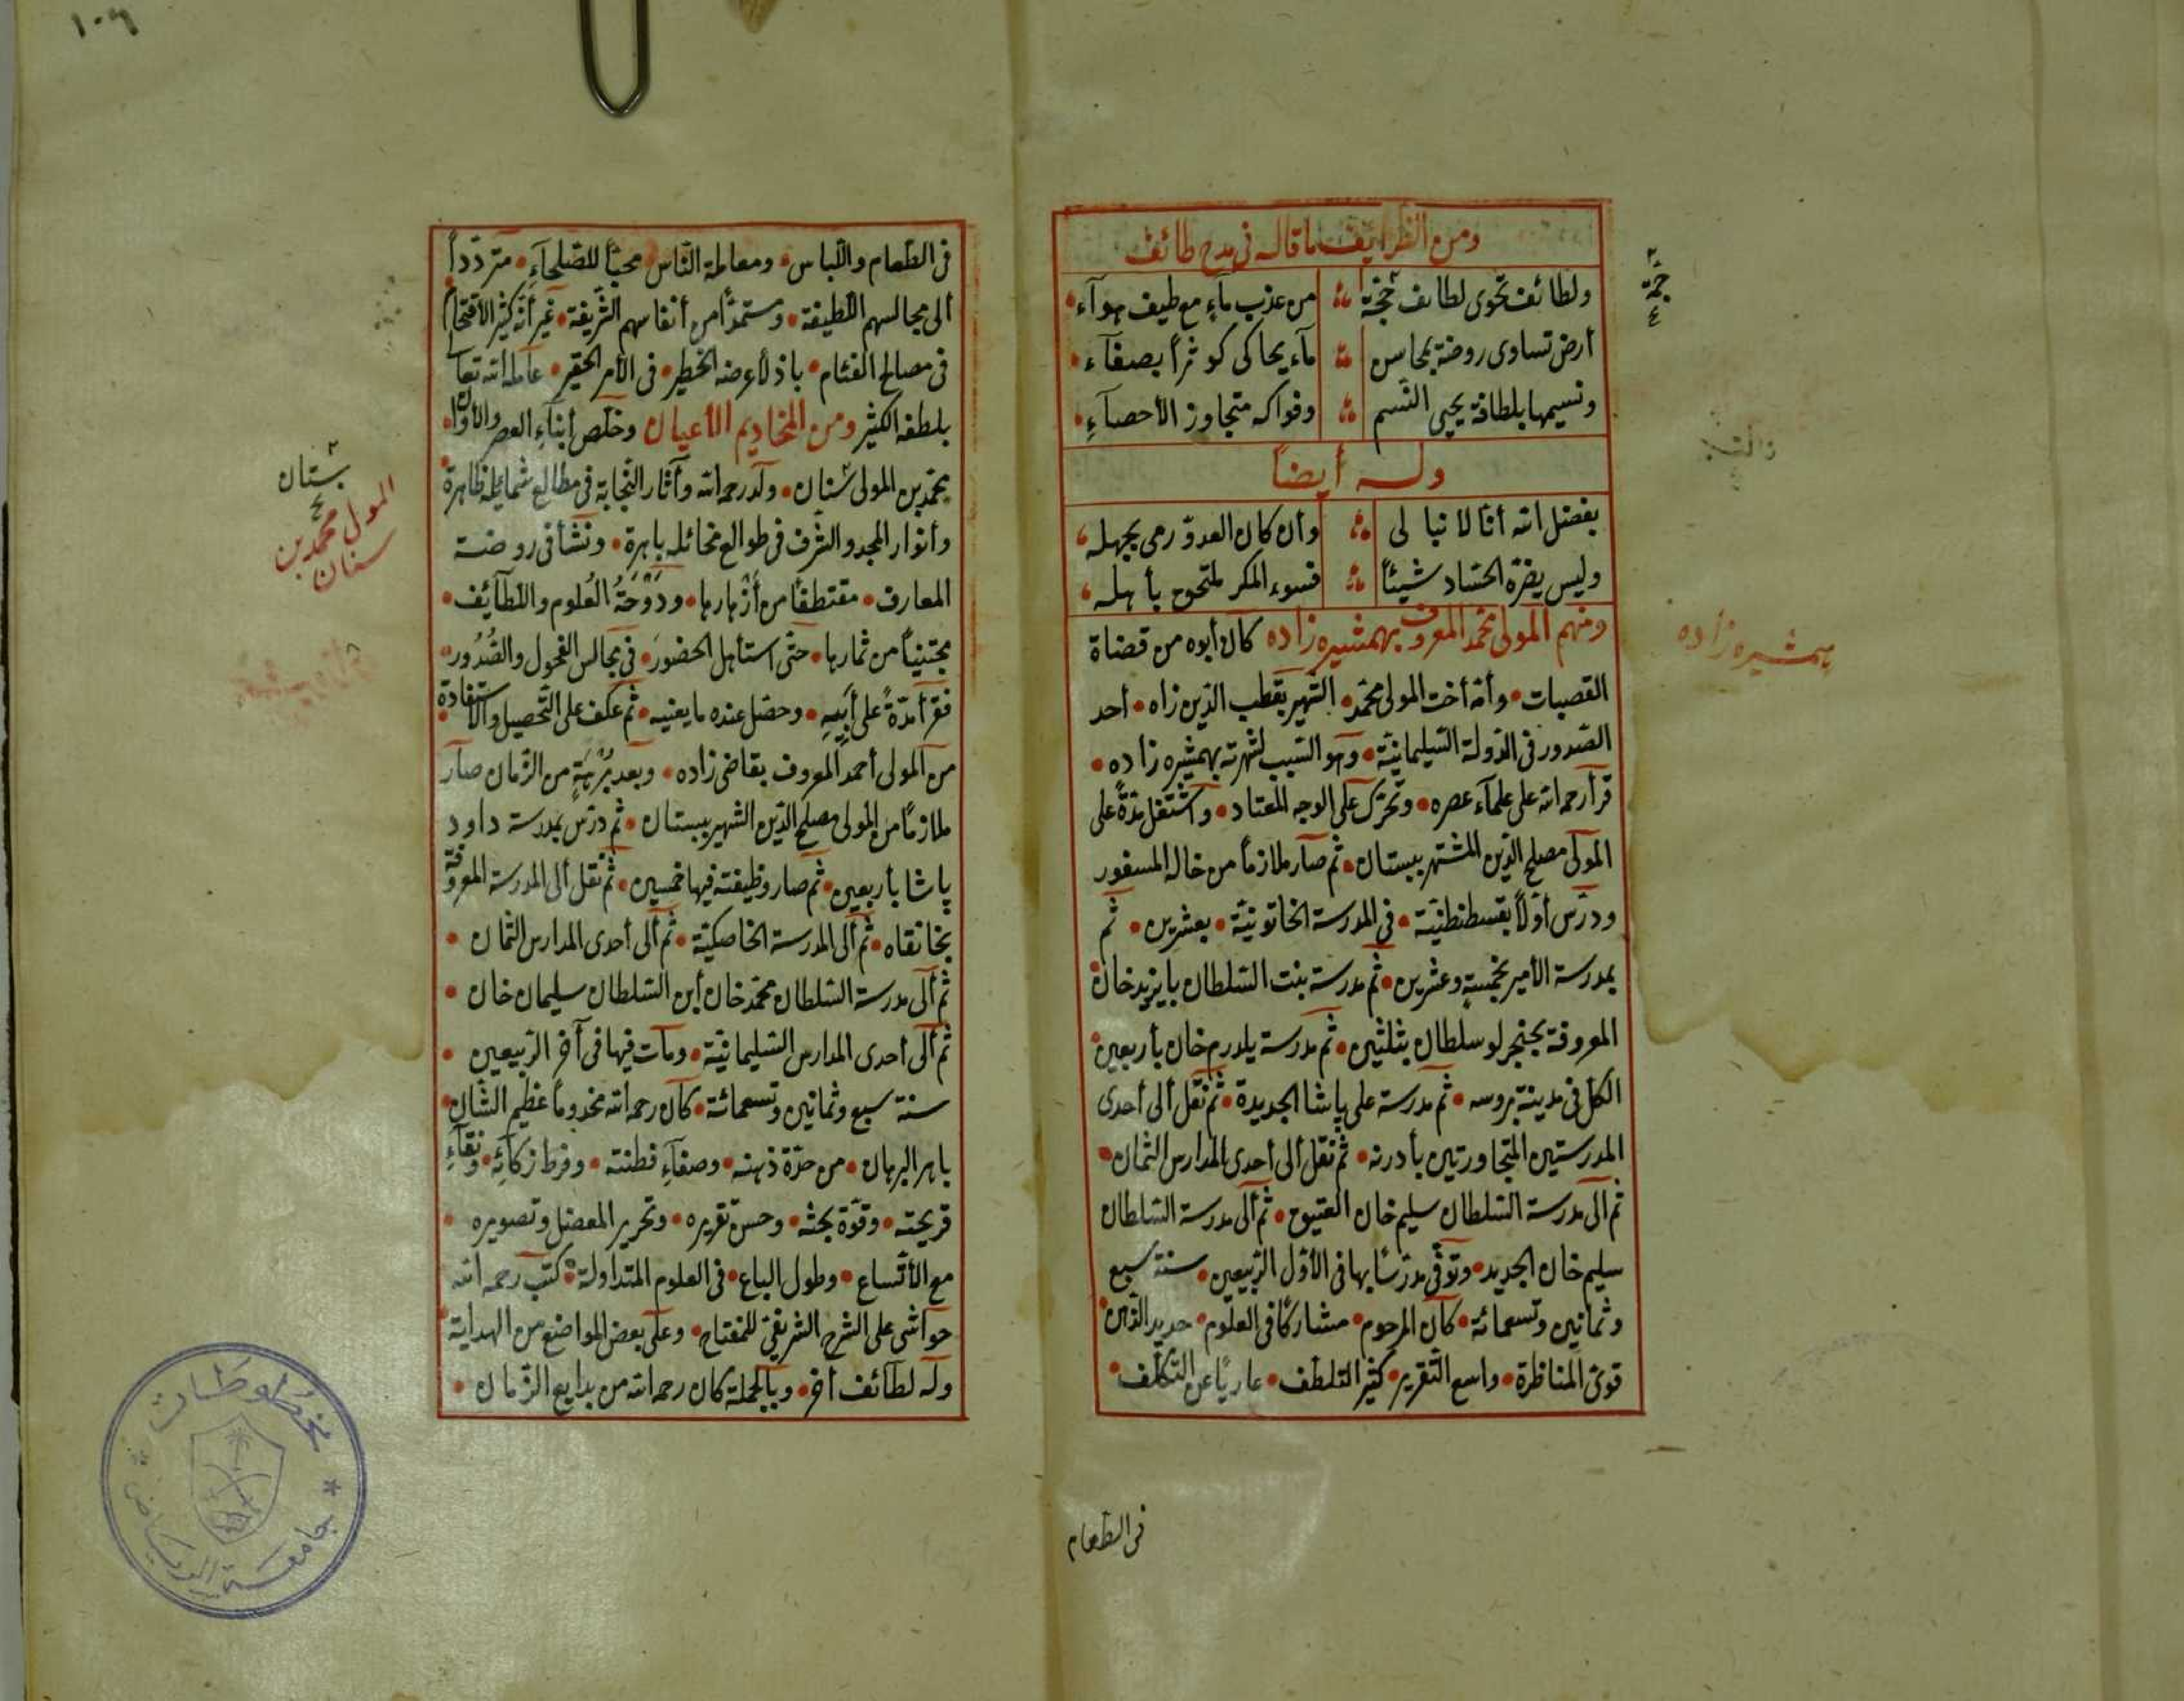 ١٠٦
ومن الظرايف ما قاله فى مدح طائف
ولطائف تحوى لطايف ججة ∴ من عذب مآءٍ مع طيف هوآء
جمّة
أرض تساوى روضة بمحاسن ∴ مآء يحاكى كوثراً بصفآء
ونسيمها بلطافة يحيى النّسم ∴ وفواكه متجاوز الأحصآءِ
وله أيضاً
بفضل الله أنّا لا نبالى ∴ وأن كان العدوّ رمى بجهله
وليس يضرّه الحسّاد شيئاً ∴ فسوء المكر ملتحق بأهله
ومنهم المولى محمد المعروف بهمشيره زاده كان أبوه من قضاة
همشيره زاده
القصبات • وأمّه أخت المولى محمّد • الشّهير بقطب الدّين زاه • أحد
الصّدور فى الدّولة السّليمانيّة • وهو السّبب لشهرته بهمشيره زاده •
قرأ رحمه الله على علمآء عصره • وتحرّك على الوجه المعتاد • واشتغل مدّةً على
المولى مصلح الدّين المشتهر ببستان • ثم صار ملازماً من خاله المسفور
ودرّس أوّلاً بقسطنطنيّة • فى المدرسة الخاتونيّة • بعشرين • ثم
بمدرسة الأمير بخمسةٍ وعشرين • ثم مدرسة بنت السّلطان بايزيد خان
المعروفة بجنجرلو سلطان بثلثين • ثم مدرسة يلدرم خان بأربعين
الكلّ فى مدينة بروسه • ثم مدرسة على پاشا الجديدة • ثم نقل ألى أحدى
المدرستين المتجاورتين بأدرنه • ثم نقل ألى أحدى المدارس الثمان •
ثم ألى مدرسة السّلطان سليم خان العتيق • ثم ألى مدرسة السّلطان
سليم خان الجديد • وتوفّى مدرّساً بها فى الأوّل الرّبيعين • سنة سبع
وثمانين وتسعمائة • كان المرحوم • مشاركًا فى العلوم • حديد الذّهن •
قوىّ المناظرة • واسع التّقرير • كثير التلطّف • عاريًا عن التّكلّف •
فى الطعام
فى الطّعام واللّباس • ومعاملة النّاس • محبّاً للصّلحآءِ • متردّداً
ألى مجالسهم اللّطيفة • ومستمدّاً من أنفاسهم الشّريفة • غير أنّه كثير الأقتحام
فى مصالح الفئام • باذلاً عرضه الخطير • فى الأمر الحقير • عامله الله تعالى
بلطفه الكثير ومن المخاديم الأعيان وخلّص أبنآءِ العصر والأوان
محمّد بن المولى سنان • ولد رحمه الله وآثار النّجابة فى مطالع شمايله ظاهرة
بستان
المولى محمد بن سنان
وأنوار المجد والشّرف فى طوالع مخائله باهرة • ونشأ فى روضة
المعارف • مقتطفًا من أزهارها • ودَوْحَةُ العُلوم واللّطآئِف •
مجتنياً من ثمارها • حتّى استأهل الحضورَ • فى مجالس الفحول والصُّدُور •
فقرأ مدّةً على أبيه • وحصّل عنده ما يغنيه • ثم عكف على التّحصيل والأستفادة
من المولى أحمد المعروف بقاضى زاده • وبعد بُرْهَةٍ من الزّمان صار
ملازمًا من المولى مصلح الدّين الشهير ببستان • ثم درّس بمدرسة داود
پاشا بأربعين • ثم صار وظيفته فيها خمسين • ثم نقل ألى المدرسة المعروفة
بخانقاه • ثم ألى المدرسة الخاصكيّة • ثم ألى أحدى المدارس الثمان •
ثم ألى مدرسة السّلطان محمّد خان أبن السّلطان سليمان خان •
ثم ألى أحدى المدارس السّليمانيّة • ومات فيها فى آخر الرّبيعين •
سنة سبع وثمانين وتسعمائة • كان رحمه الله مخدوماً عظيم الشّان
باهر البرهان • من حدّة ذهنه • وصفآءِ فطنته • وفرط زكائِهِ • ونقآءِ
قريحته • وقوّة بحثه • وحسن تقريره • وتحرير المعضل وتصويره •
مع الأتّساع • وطول الباع • فى العلوم المتداولة • كتب رحمه الله
حواشى على الشرح الشريفىّ للمفتاح • وعلى بعض المواضع من الهداية
وله لطآئف أخر • وبالجملة كان رحمه الله من بدايع الزّمان •
مخطوطات
جامعة الرياض